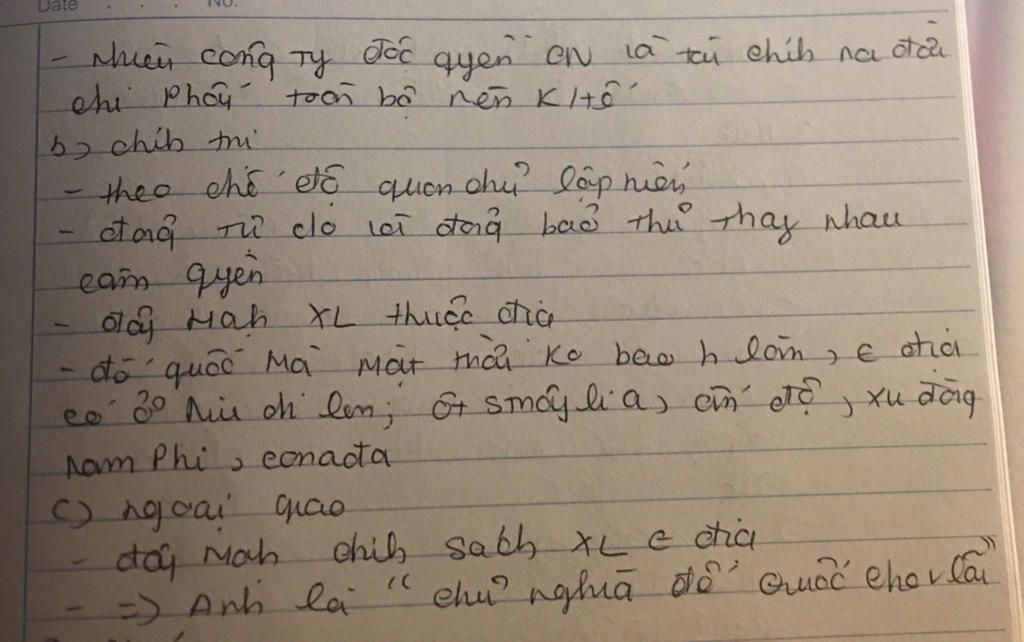 Date . . . No.
- Nhiều công ty độc quyền CN và tài chíh ra đời
chi phối toàn bộ nền KHtế
b, chíh trị
- theo chế độ quân chủ lập hiến
- đảng Tự do và đảng bảo thủ thay nhau
cầm quyền
- đẩy Mạh XL thuộc địa
- đế quốc Mà Mặt trời ko bao h lặn, ∈ địa
có ở Niu di len, Ôt smây li a, ấn độ, xu đăng
Nam Phi, canađa
c) ngoại giao
- đẩy Mạh chíh sách XL ∈ địa
- => Anh là "chủ nghĩa đế quốc